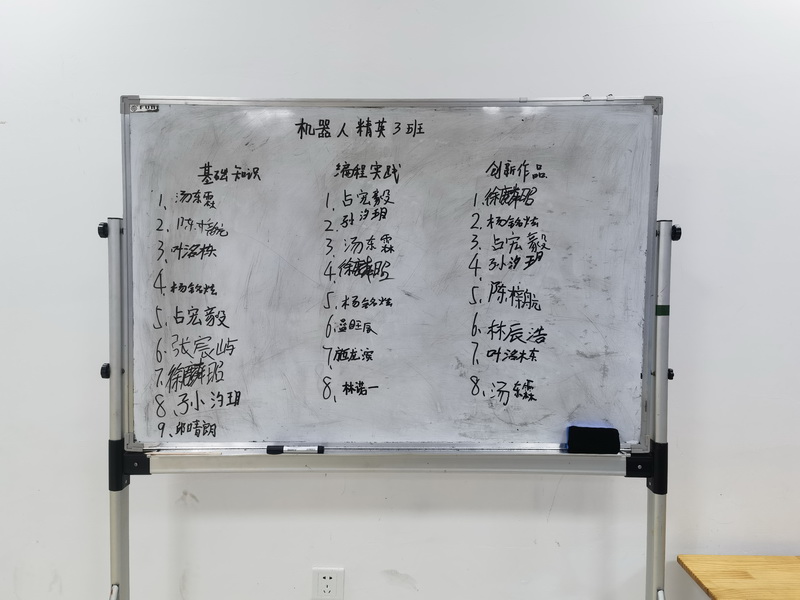 机器人精英3班
基础知识
1、汤东霖
2、陈梓航
3、叶洛栋
4、杨铭炫
5、占宏毅
6、张宸屿
7、徐麟昭
8、孙汐玥
9、邱晴朗
编程实践
1、占宏毅
2、孙汐玥
3、汤东霖
4、徐麟昭
5、杨铭炫
6、旺辰
7、龙滨
8、林诺一
创新作品
1、徐麟昭
2、杨铭炫
3、占宏毅
4、孙汐玥
5、陈梓航
6、林辰浩
7、叶洛栋
8、汤东霖